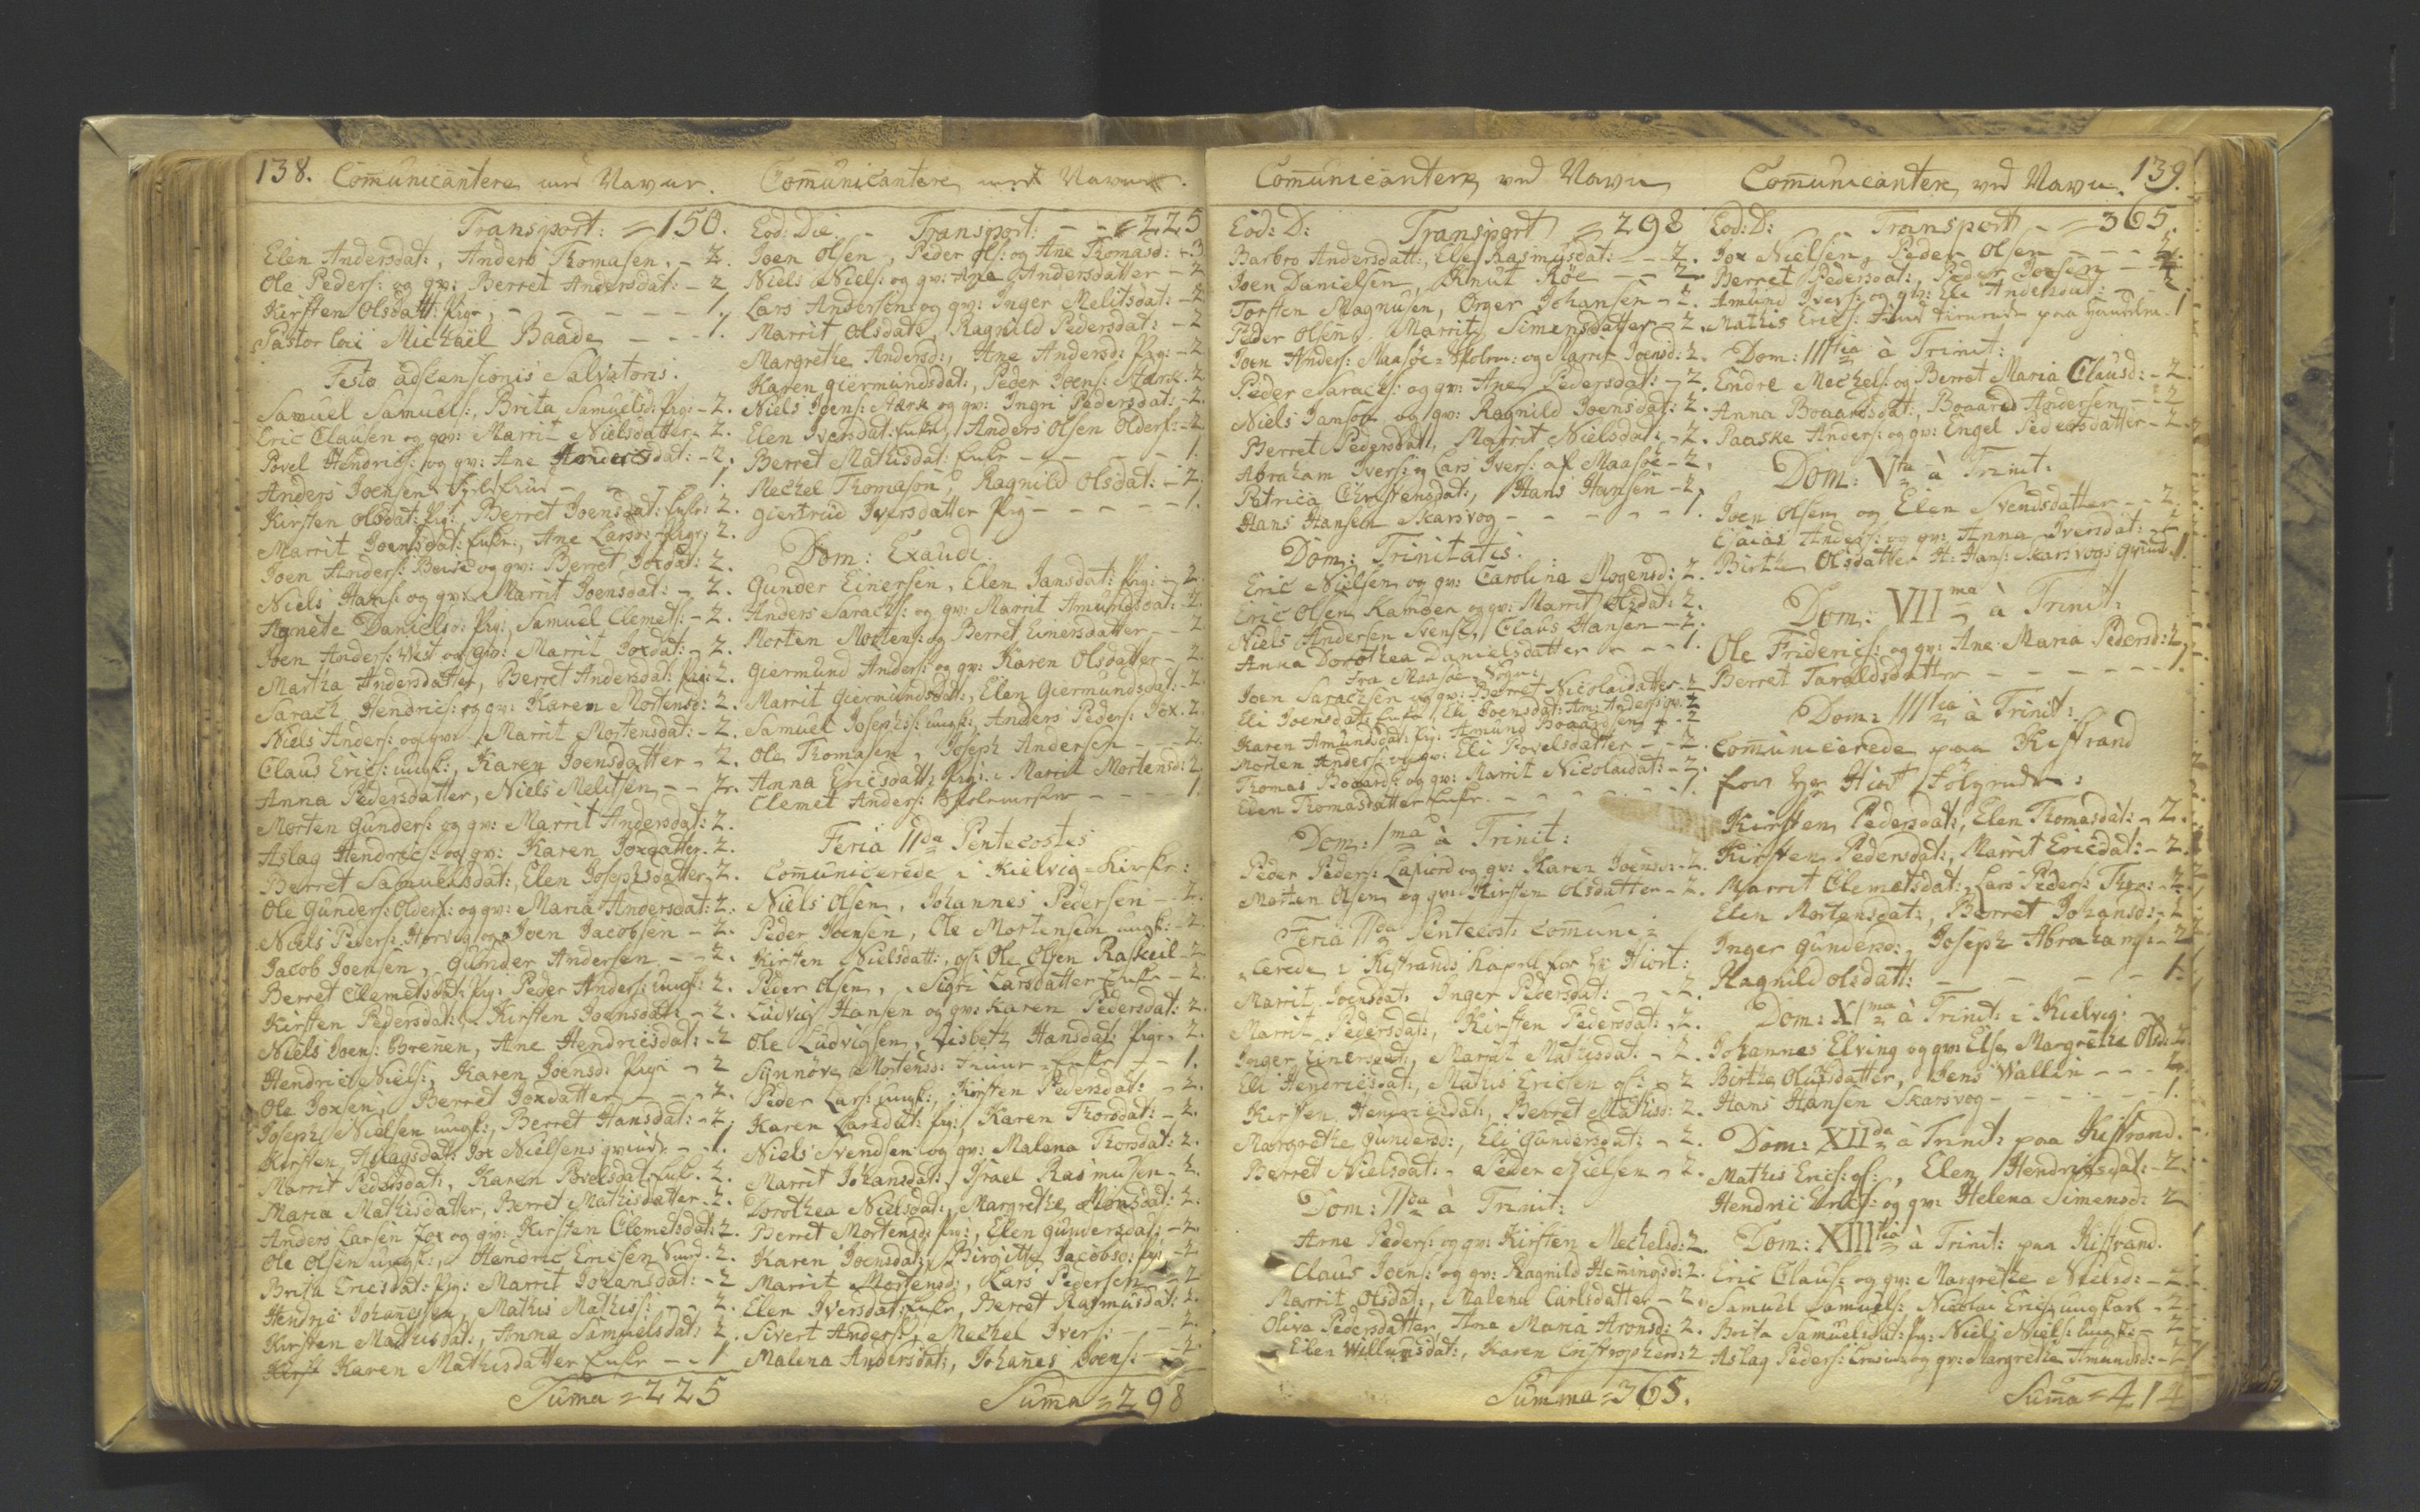 138. Com̄unicantere med Navne.
Transport: = 150.
Elen Andersdat:, Anders Thomasen. - 2.
Ole Peders: og qv: Berret Andersdat: - 2
Kirsten Olsdatt: pige, - - - 1.
Pastor loci Michaël Baade - - - 1.
Festo adscensionis Salvatoris.
Samuel Samuels:, Brita Samuelsd: pig: - 2.
Eric Clausen og qv: Marrit Nielsdatter - 2.
Povel Hendrics: og qv: Ane Andersdat: - 2.
Anders Joensen - - 1.
Kirsten Olsdat: pig:, Berret Joensdat: Enke: 2.
Marrit Joensdat: Enke:, Ane Larsd: pige: 2.
Joen Anders: og qv: Berret Joxdat: 2.
Niels Hans: og qv: Marrit Joensdat: - 2.
Agnete Danielsd: pig:, Samuel Clemets: - 2.
Joen Anders: West og qv: Marrit Joxdat: - 2.
Martha Andersdatter, Berret Andersdat: pig: 2.
Sarach Hendrics: og qv: Karen Mortensd: 2.
Niels Anders: og qv: Marrit Mortensdat: - 2.
Claus Erics: ungk:, Karen Joensdatter - 2.
Anna Pedersdatter, Niels Melitsen - - 2.
Morten Gunders: og qv: Marrit Andersdat: 2.
Aslag Hendrics: og qv: Karen Joxdatter. 2.
Berret Samuelsdat:, Elen Josephsdatter. 2.
Ole Gunders: Olders: og qv: Maria Andersdat: 2.
Niels Peders: og Joen Jacobsen - 2.
Jacob Joensen, Gunder Andersen - - 2.
Berret Clemetsdat: pig: Peder Anders: ungk: 2.
Kirsten Pedersdat:, Kirsten Joensdat: - 2.
Niels Joens: Brenen, Ane Hendricsdat: - 2
Hendric Niels:, Karen Joensd: Pige - 2
Ole Joxsen, Berret Joxdatter - - 2.
Joseph Nielsen ungk:, Berret Hansdat: - 2.
Kirsten Aslagsdat: Jox Nielsens qvinde - - 1.
Marrit Pedersdat:, Karen Povelsdat: Enke. 2.
Maria Mathisdatter, Berret Mathisdatter. 2.
Anders Larsen Jox og qv: Kirsten Clemetsdat: 2.
Ole Olsen ungk:, Hendric Ericsen Sund. 2.
Brita Ericsdat: Pig: Marrit Johansdat: - 2
Hendric Johanesen, Mathis Mathis: - - 2.
Kirsten Mathisdat:, Anna Samuelsdat: 2.
Karen Mathisdatter Enke - - 1
Suma = 225
Com̄unicantere med Navne.
Eod: Die. - Transport: - - = 225
Joen Olsen, Peder Ols: og Ane Thomasd: - 3
Niels Niels: og qv: Ane Andersdatter - 2
Lars Andersen og qv: Inger Melitsdat: - 2
Marrit Olsdat:, Ragnild Pedersdat: - 2
Margrethe Andersd:, Ane Andersd: Pig: - 2
Karen Giermundsdat:, Peder Joens: Stærk. 2.
Niels Joens: Stærk og qv: Ingri Pedersdat: - 2.
Elen Iversdat: Enke, Anders Olsen Olders: - 2
Berret Mathisdat: Enke - - - - 1.
Mechel Thomason, Ragnild Olsdat: - 2.
Giertrud Iversdatter Pig - - - - 1.
Dom: Exaudi.
Gunder Einersen, Elen Jansdat: Pig: - 2.
Anders Sarachs: og qv: Marrit Amundsdat: - 2.
Morten Mortens: og Berret Einersdatter - - 2
Giermund Anders: og qv: Karen Olsdatter - 2.
Marrit Giermundsdat:, Elen Giermundsdat: - 2.
Samuel Josephs: ungk:, Anders Peders: Jox. 2.
Ole Thomasen, Joseph Andersen - - - 2.
Anna Ericsdatt: Pig: Marrit Mortensd: 2.
Clemet Anders: Skolemester - - - - 1.
Feria IIda Pentecostes
Com̄unicerede i Kielvig=Kirke:
Niels Olsen, Johannes Pedersen - - 2.
Peder Joensen, Ole Mortensen ungk: - 2.
Kirsten Nielsdatt:, gl: Ole Olsen Raskeil - 2
Peder Olsen, Sigri Larsdatter Enke - 2.
Ludvig Hansen og qv: Karen Pedersdat: 2.
Ole Ludvigsen, Lisbeth Hansdat: Pige. 2.
Synnöve Mortensd: Enke - - 1.
Peder Lars: ungk:, Kirsten Pedersdat: - 2.
Karen Larsdat: pig:, Karen Thorsdat: - 2.
Niels Svendsen og qv: Malena Thorsdat: 2.
Marrit Johansdat:, Israel Rasmusen - 2.
Dorothea Nielsdat:, Margrethe Monsdat: 2.
Berret Mortensd: Pig:, Elen Gundersdat: - 2.
Karen Joensdat:, Birgitte Jacobsd: pig: - 2
Marrit Mortensd:, Lars Pedersen - 2
Elen Iversdat: Enke, Berret Rasmusdat: 2.
Sivert Anders:, Mechel Ivers: - - 2.
Malena Andersdat:, Johanes Joens: - 2.
Suma = 298
Com̄unicantere ved Navn
Eod: D: Transport = 298
Barbro Andersdatt:, Else Rasmusdat: - - 2.
Joen Danielsen, Knut Röe - - 2.
Torsten Magnusen, Örger Johansen - 2.
Peder Olsen, Marrit Simensdatter - 2.
Joen Anders: Maasöe=Skolem: og Marrit Joensd: 2.
Peder Sarachs: og qv: Ane Pedersdat: - 2.
Niels Janson og qv: Ragnild Joensdat: 2.
Berret Pedersdatt, Marrit Nielsdat: - 2.
Abraham Ivers: og Lars Ivers: af Maasöe - 2.
Petrica Christensdat:, Hans Hansen - 2.
Hans Hansen Skarsvog - - - - 1.
Dom: Trinitatis.
Eric Nielsen og qv: Carolina Mogensd: 2.
Eric Olsen Kamöen og qv: Marrit Olsdat: 2.
Niels Andersen Svensk, Claus Hansen - 2.
Anna Dorothea Danielsdatter - - - 1.
Fra Maasöe Sogn:
Joen Sarachsen og qv: Berret Nicolaidatter - 2
Eli Joensdat: Enke, Eli Joensdat: Am: Anders: qv: 2
Karen Amundsdat: pig: Amund Boaardsen - 2
Morten Anders: og qv: Eli Povelsdatter - - 2.
Thomas Boaards: og qv: Marrit Nicolaidat: - 2.
Elen Thomasdatter Enke. - - - - 1.
Dom: 1ma à Trinit:
Peder Peders: Laxiord og qv: Karen Joensd: - 2.
Morten Olsen og qv: Kirsten Olsdatter - 2.
Feria IIda Pentecost: Com̄uni=
cerede i Kistrands Kapel for Hr Hiort:
Marit Joensdat: Inger Pedersdat: - - 2.
Marrit Pedersdat:, Kirsten Pedersdat: - 2.
Inger Einersdat:, Marrit Mathisdat: - 2.
Eli Hendricsdat:, Mathis Ericsen gl: - 2
Kirsten Hendricsdat:, Berret Mathisd: 2.
Margrethe Gundersd:, Eli Gundersdat: - 2.
Berret Nielsdat: - Peder Nielsen - 2.
Dom: IIda à Trinit:
Arne Peders: og qv: Kirsten Mechelsd: 2.
Claus Joens: og qv: Ragnild Hemingsd: 2.
Marrit Olsdat:, Malena Carlsdatter - 2.
Oliva Pedersdatter, Ane Maria Aronsd: 2.
Elen Willumsdat:, Karen Cristophersd: 2
Summa = 365.
Com̄unicantere ved Navn. 139.
Eod: D: Transport - = 365.
Jox Nielsen, Peder Olsen - - - 2.
Berret Pedersdat:, Peder Joensen - 2.
Amund Ivers: og qv: Eli Andersdat: - 2.
Mathis Erics: paa - 1
Dom: IIItia à Trinit:
Endre Mechels: og Berret Maria Clausd: - 2.
Anna Boaardsdat:, Boaard Andersen - - 2
Paaske Anders: og qv: Engel Pedersdatter - 2.
Dom: Vta à Trinit:
Joen Olsen og Elen Svendsdatter - - 2.
Esaias Anders: og qv: Anna Iversdat: - 2
Birthe Olsdatter H: Hans: Skarsvogs Qvind. 1.
Dom: VIIma à Trinit:
Ole Friderics: og qv: Ane Maria Pedersd: 2.
Berret Taraldsdatter - - - - 1.
Dom: IIItia à Trinit:
Com̄unicerede paa Kistrand
for Hr Hiort fölgende:
Kirsten Pedersdat:, Elen Thomasdat: - 2.
Kirsten Pedersdat:, Marrit Ericdat: - 2.
Marrit Clemetsdat:, Lars Peders: - 2.
Elen Mortensdat:, Berret Johansd: - 2
Inger Gundersd:, Joseph Abrahams: - 2
Ragnild Olsdatt: - - - - 1.
Dom: XIma à Trinit: i Kielvig:
Johannes Elving og qv: Else Margrethe Olsd: 2.
Birthe Olusdatter, Jens Wallin - - - 2.
Hans Hansen Skarsvog - - - - 1.
Dom: XIIda à Trinit: paa Kistrand.
Mathis Erics: gl:, Elen Hendricsdat: - 2.
Hendric Erics: og qv: Helena Simensd: 2
Dom: XIIItia à Trinit: paa Kistrand.
Eric Claus: og qv: Margrethe Nielsd: - 2.
Samuel Samuels: Nicolai Erics: ungkarl - 2.
Brita Samuelsdat: pig: Niels Niels: ungk: - 2
Aslag Peders: og qv: Margrethe Amundsd: - 2.
Suma = 414